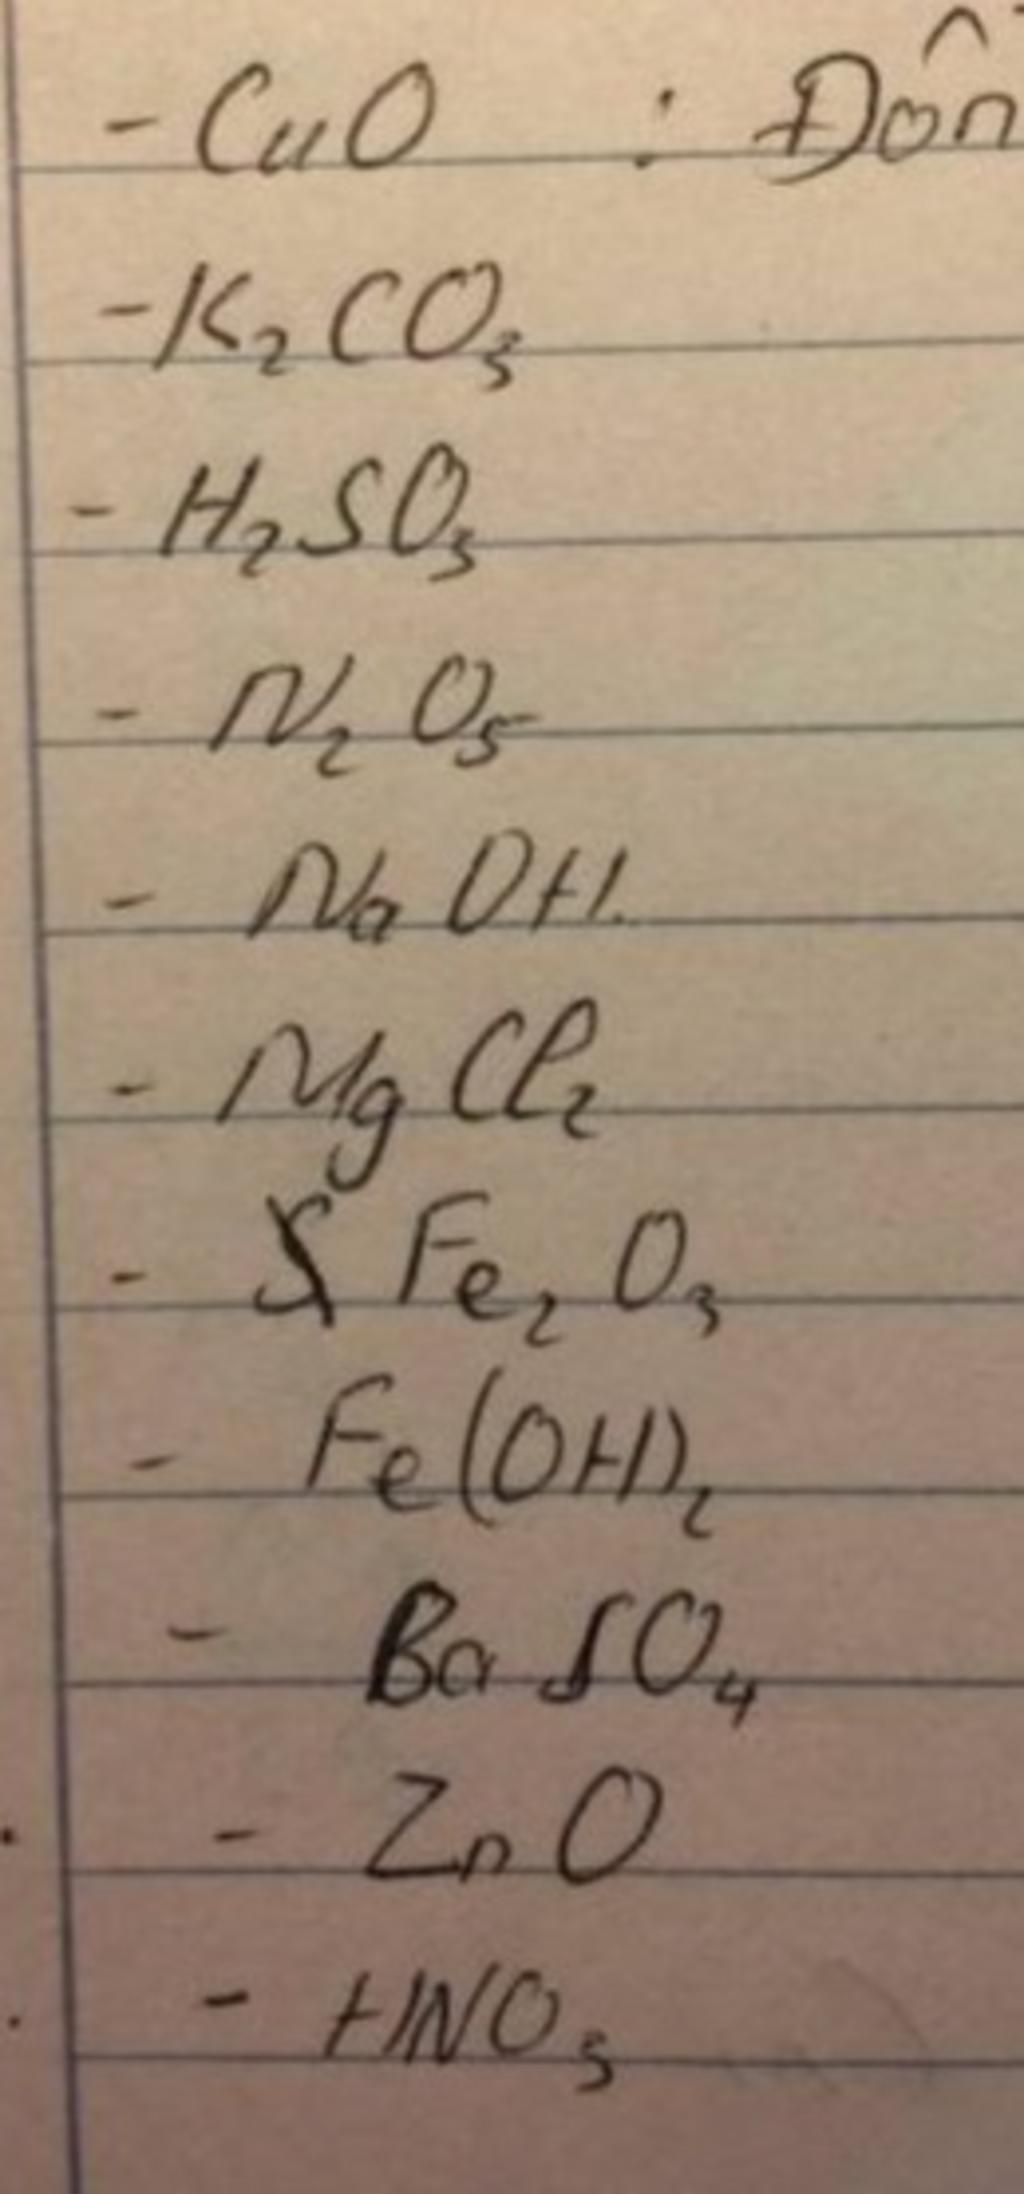 - CuO : Đồn
- K₂CO₃
- H₂SO₃
- N₂O₅
- NaOH.
- MgCl₂
- Fe₂O₃
- Fe(OH)₂
- BaSO₄
- ZnO
- HNO₃